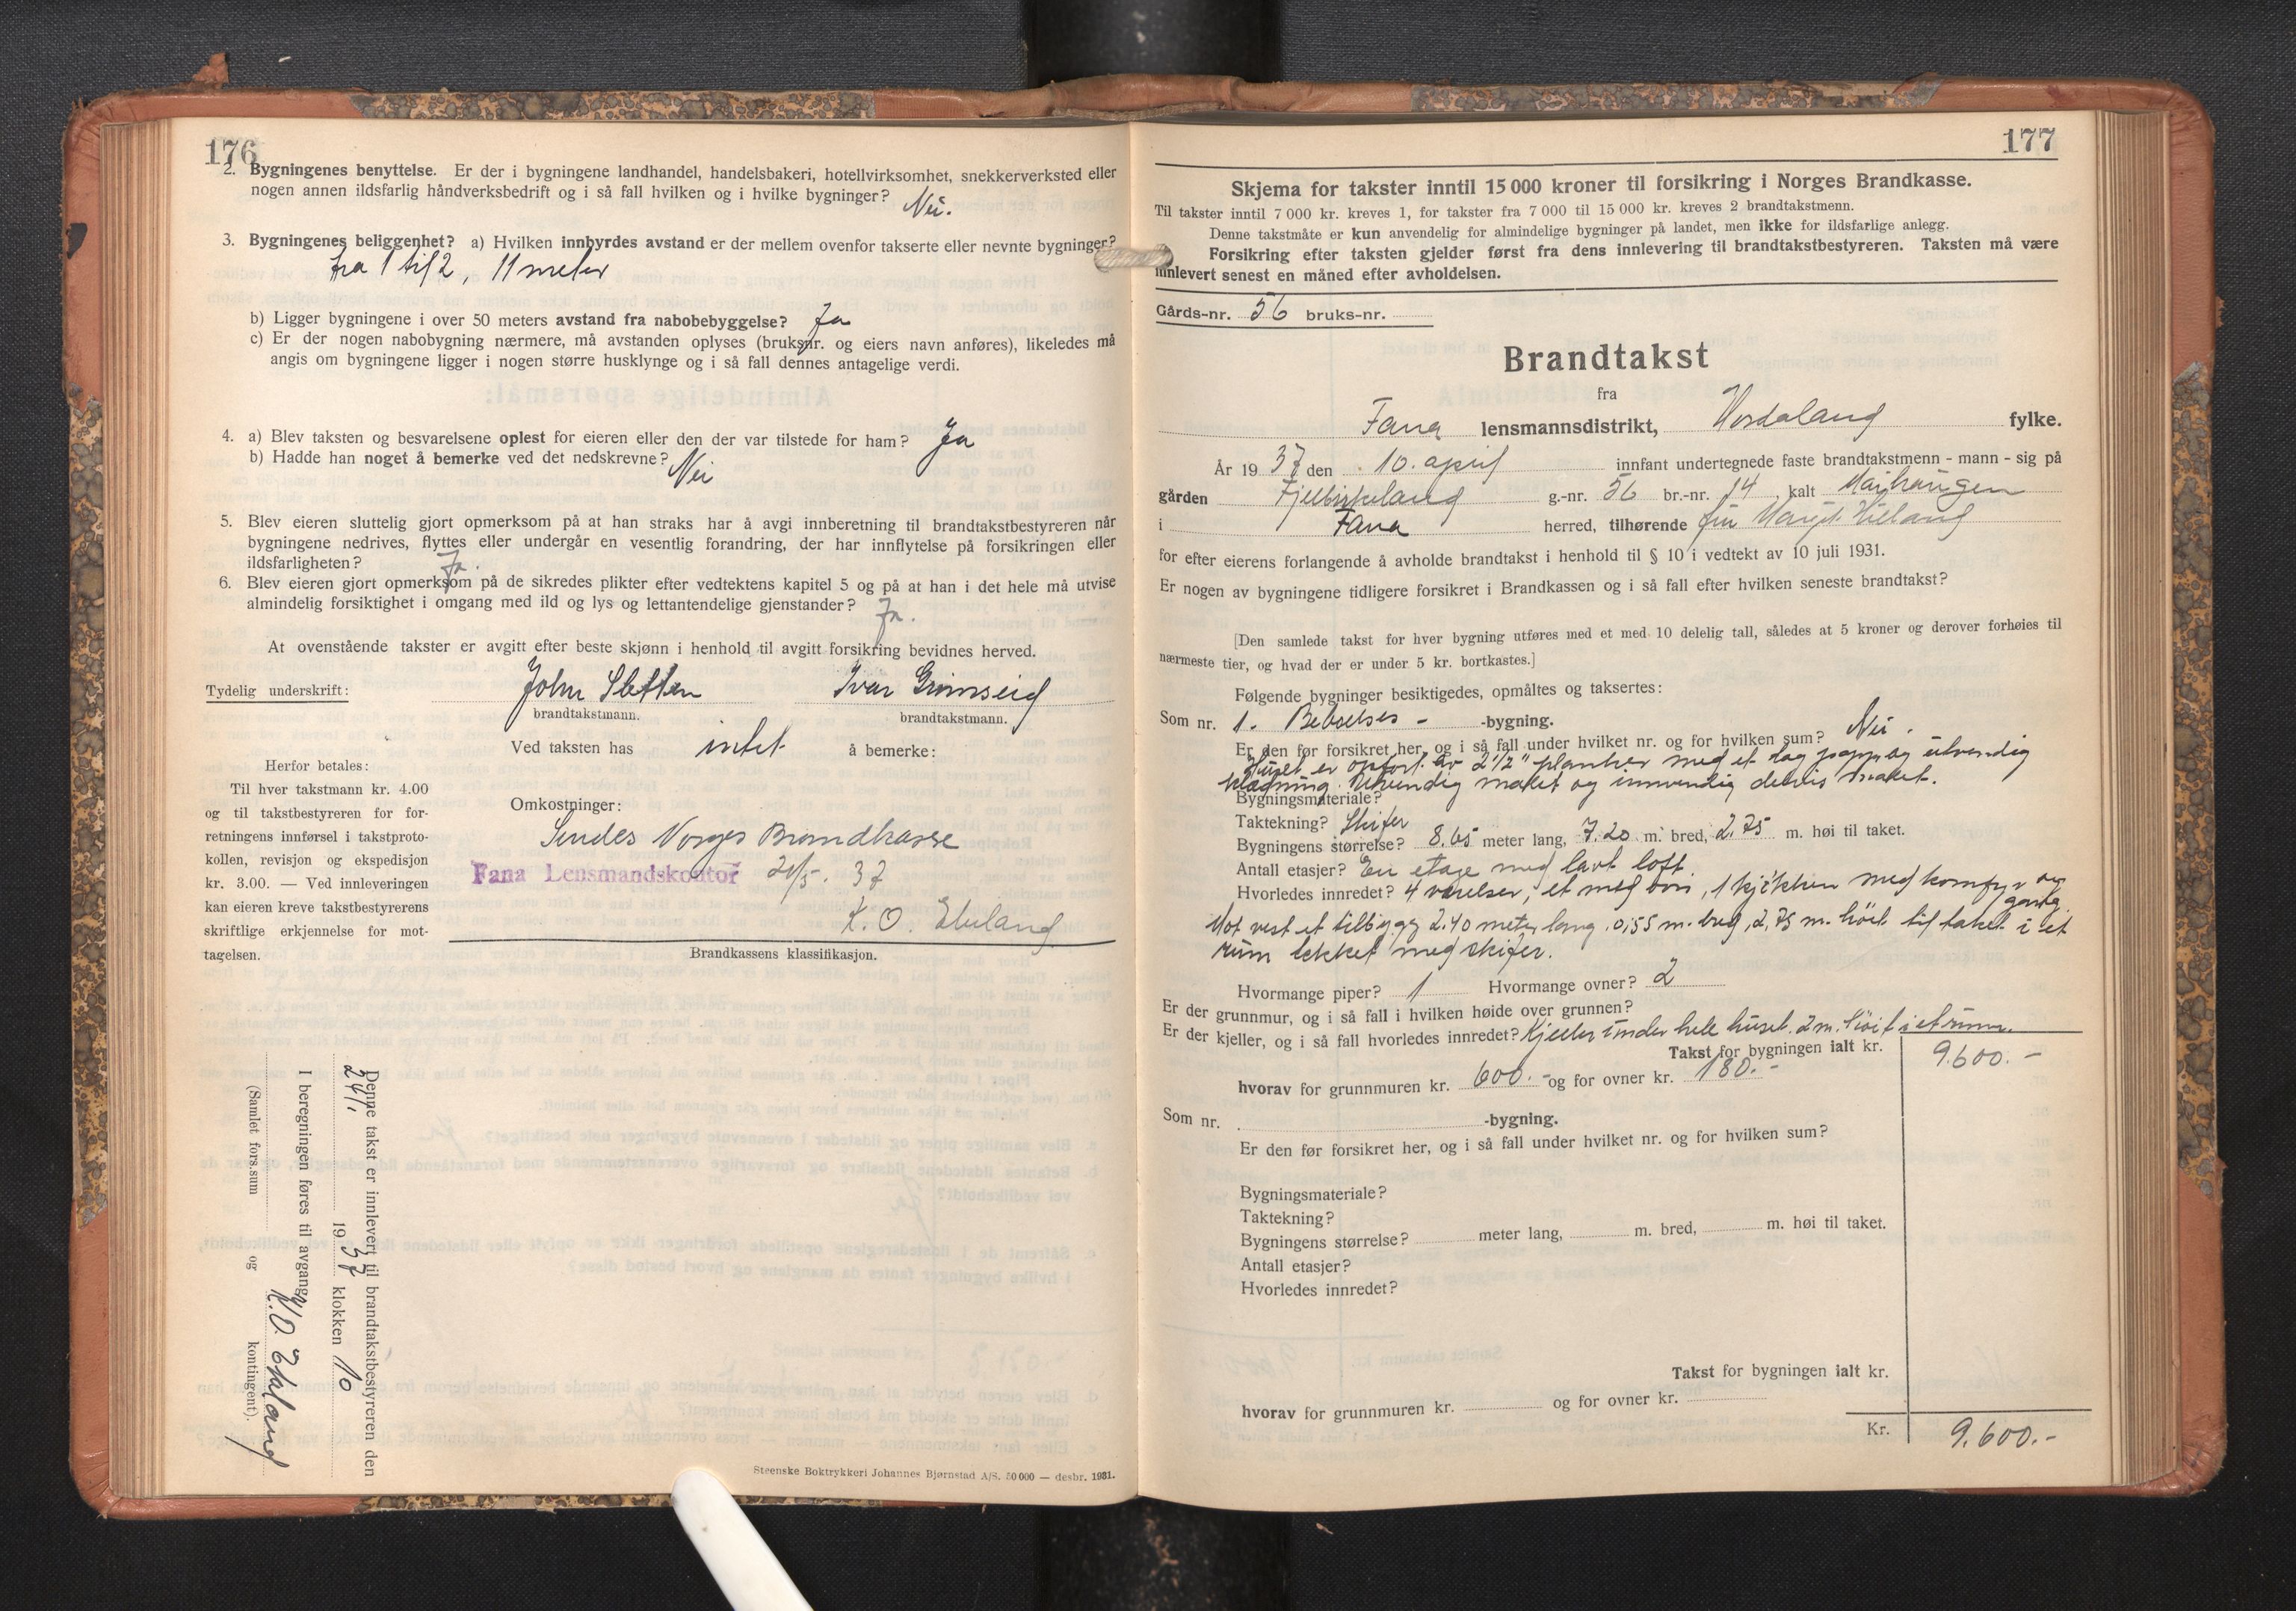 176
2. Bygningenes benyttelse. Er der i bygningene landhandel, handelsbakeri, hotellvirksomhet, snekkerverksted eller
nogen annen ildsfarlig håndverksbedrift og i så fall hvilken og i hvilke bygninger? Nei.
3. Bygningenes beliggenhet? a) Hvilken innbyrdes avstand er der mellem ovenfor takserte eller nevnte bygninger?
fra 1 til 2, 11 meter
b) Ligger bygningene i over 50 meters avstand fra nabobebyggelse? Ja
c) Er der nogen nabobygning nærmere, må avstanden oplyses (bruksnr. og eiers navn anføres), likeledes må
angis om bygningene ligger i nogen større husklynge og i så fall dennes antagelige verdi.
4. a) Blev taksten og besvarelsene oplest for eieren eller den der var tilstede for ham? Ja
b) Hadde han noget å bemerke ved det nedskrevne? Nei
5. Blev eieren sluttelig gjort opmerksom på at han straks har å avgi innberetning til brandtakstbestyreren når
bygningene nedrives, flyttes eller undergår en vesentlig forandring, der har innflytelse på forsikringen eller
ildsfarligheten? Ja.
6. Blev eieren gjort opmerksom på de sikredes plikter efter vedtektens kapitel 5 og på at han i det hele må utvise
almindelig forsiktighet i omgang med ild og lys og lettantendelige gjenstander? Ja.
At ovenstående takster er avgitt efter beste skjønn i henhold til avgitt forsikring bevidnes herved.
Tydelig underskrift: John Sletten Ivar Grimseid
brandtakstmann. brandtakstmann.
Ved taksten has intet å bemerke:
Herfor betales:
Til hver takstmann kr. 4.00
og til takstbestyreren for for-
retningens innførsel i takstproto-
kollen, revisjon og ekspedisjon
kr. 3.00. — Ved innleveringen
kan eieren kreve takstbestyrerens
skriftlige erkjennelse for mot-
tagelsen.
Omkostninger:
Sendes Norges Brandkasse
Fana Lensmandskontor 21/5. 37
K. O. Eteland
Brandkassens klassifikasjon.
Denne takst er innlevert til brandtakstbestyreren den
24/1 1937 klokken 10
I beregningen føres til avgang
K. O. Eteland
(Samlet fors.sum og kontingent).
Steenske Boktrykkeri Johannes Bjørnstad A/S. 50 000 — desbr. 1931.
177
Skjema for takster inntil 15 000 kroner til forsikring i Norges Brandkasse.
Til takster inntil 7 000 kr. kreves 1, for takster fra 7 000 til 15 000 kr. kreves 2 brandtakstmenn.
Denne takstmåte er kun anvendelig for almindelige bygninger på landet, men ikke for ildsfarlige anlegg.
Forsikring efter taksten gjelder først fra dens innlevering til brandtakstbestyreren. Taksten må være
innlevert senest en måned efter avholdelsen.
Gårds-nr. 56 bruks-nr.
Brandtakst
fra
Fana lensmannsdistrikt, Hordaland fylke.
År 1937 den 10. april innfant undertegnede faste brandtakstmenn - mann - sig på
gården Fjellbirkeland g.-nr. 56 br.-nr. 14 kalt
i Fana herred, tilhørende fru
for efter eierens forlangende å avholde brandtakst i henhold til § 10 i vedtekt av 10 juli 1931.
Er nogen av bygningene tidligere forsikret i Brandkassen og i så fall efter hvilken seneste brandtakst?
[Den samlede takst for hver bygning utføres med et med 10 delelig tall, således at 5 kroner og derover forhøies til
nærmeste tier, og hvad der er under 5 kr. bortkastes.]
Følgende bygninger besiktigedes, opmåltes og taksertes:
Som nr. 1. Beboelses - -bygning.
Er den før forsikret her, og i så fall under hvilket nr. og for hvilken sum? Nei.
Huset er opfört av 2 1/2" planker med et lag papp og utvendig
klædning. Utvendig malet og innvendig delvis malet.
Bygningsmateriale?
Taktekning? Skifer
Bygningens størrelse? 8.65 meter lang, 7.20 m. bred, 2.75 m. høi til taket.
Antall etasjer? En etage med lavt loft.
Hvorledes innredet? 4 værelser, et med ovn, 1 kjökken med komfyr og
gang.
Mot vest et tilbygg 2.40 meter lang, 0,55 m. bred, 2,75 m. höit til taket i et
rum tekket med skifer.
Hvormange piper? 1 Hvormange ovner? 2
Er der grunnmur, og i så fall i hvilken høide over grunnen?
Er der kjeller, og i så fall hvorledes innredet? Kjeller under hele huset. 2 m. höit i et rum.
Takst for bygningen ialt kr. 9.600.-
hvorav for grunnmuren kr. 600.- og for ovner kr. 180.-
Som nr. -bygning.
Er den før forsikret her, og i så fall under hvilket nr. og for hvilken sum?
Bygningsmateriale?
Taktekning?
Bygningens størrelse? meter lang, m. bred, m. høi til taket.
Antall etasjer?
Hvorledes innredet?
Takst for bygningen ialt kr.
hvorav for grunnmuren kr. og for ovner kr.
Kr. 9.600.-